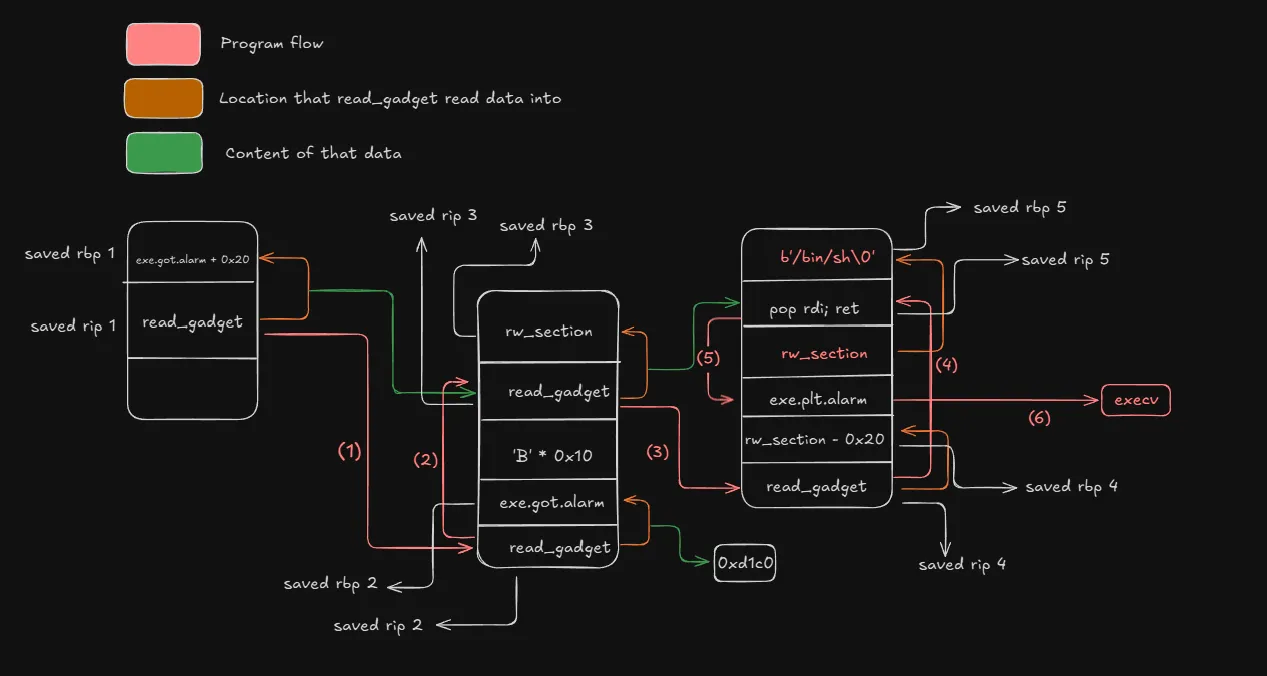 Program flow
Location that read_gadget read data into
Content of that data
saved rbp 1
exe.got.alarm + 0x20
saved rip 1
read_gadget
saved rip 3
saved rbp 3
rw_section
read_gadget
'B' * 0x10
exe.got.alarm
read_gadget
(1)
(2)
(3)
saved rbp 2
saved rip 2
0xd1c0
saved rbp 5
saved rip 5
b'/bin/sh\0'
pop rdi; ret
rw_section
exe.plt.alarm
rw_section - 0x20
read_gadget
(5)
(4)
(6)
execv
saved rbp 4
saved rip 4